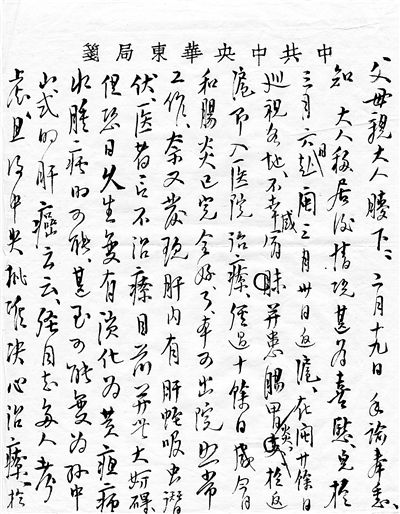 中共中央華東局箋
父母親大人膝下：二月十九日手諭奉悉，
知 大人移居後情況甚為喜慰。兒於
三月六日赴閩，三月卅日返滬。在閩廿餘日
巡視各地，不幸感冒并患腸胃炎，於返
滬即入医院治療，經過十餘日，感冒
和腸炎已完全好了，本可出院照常
工作，奈又發現肝內有肝蛭吸虫潛
伏，医者言不治療目前并無大妨礙
但恐日久生變有演化為黃疸病
水腫病的可能，甚至可能變為孫中
山式的肝癌云云，經同志多人考
慮，且得中央批准決心治療。於